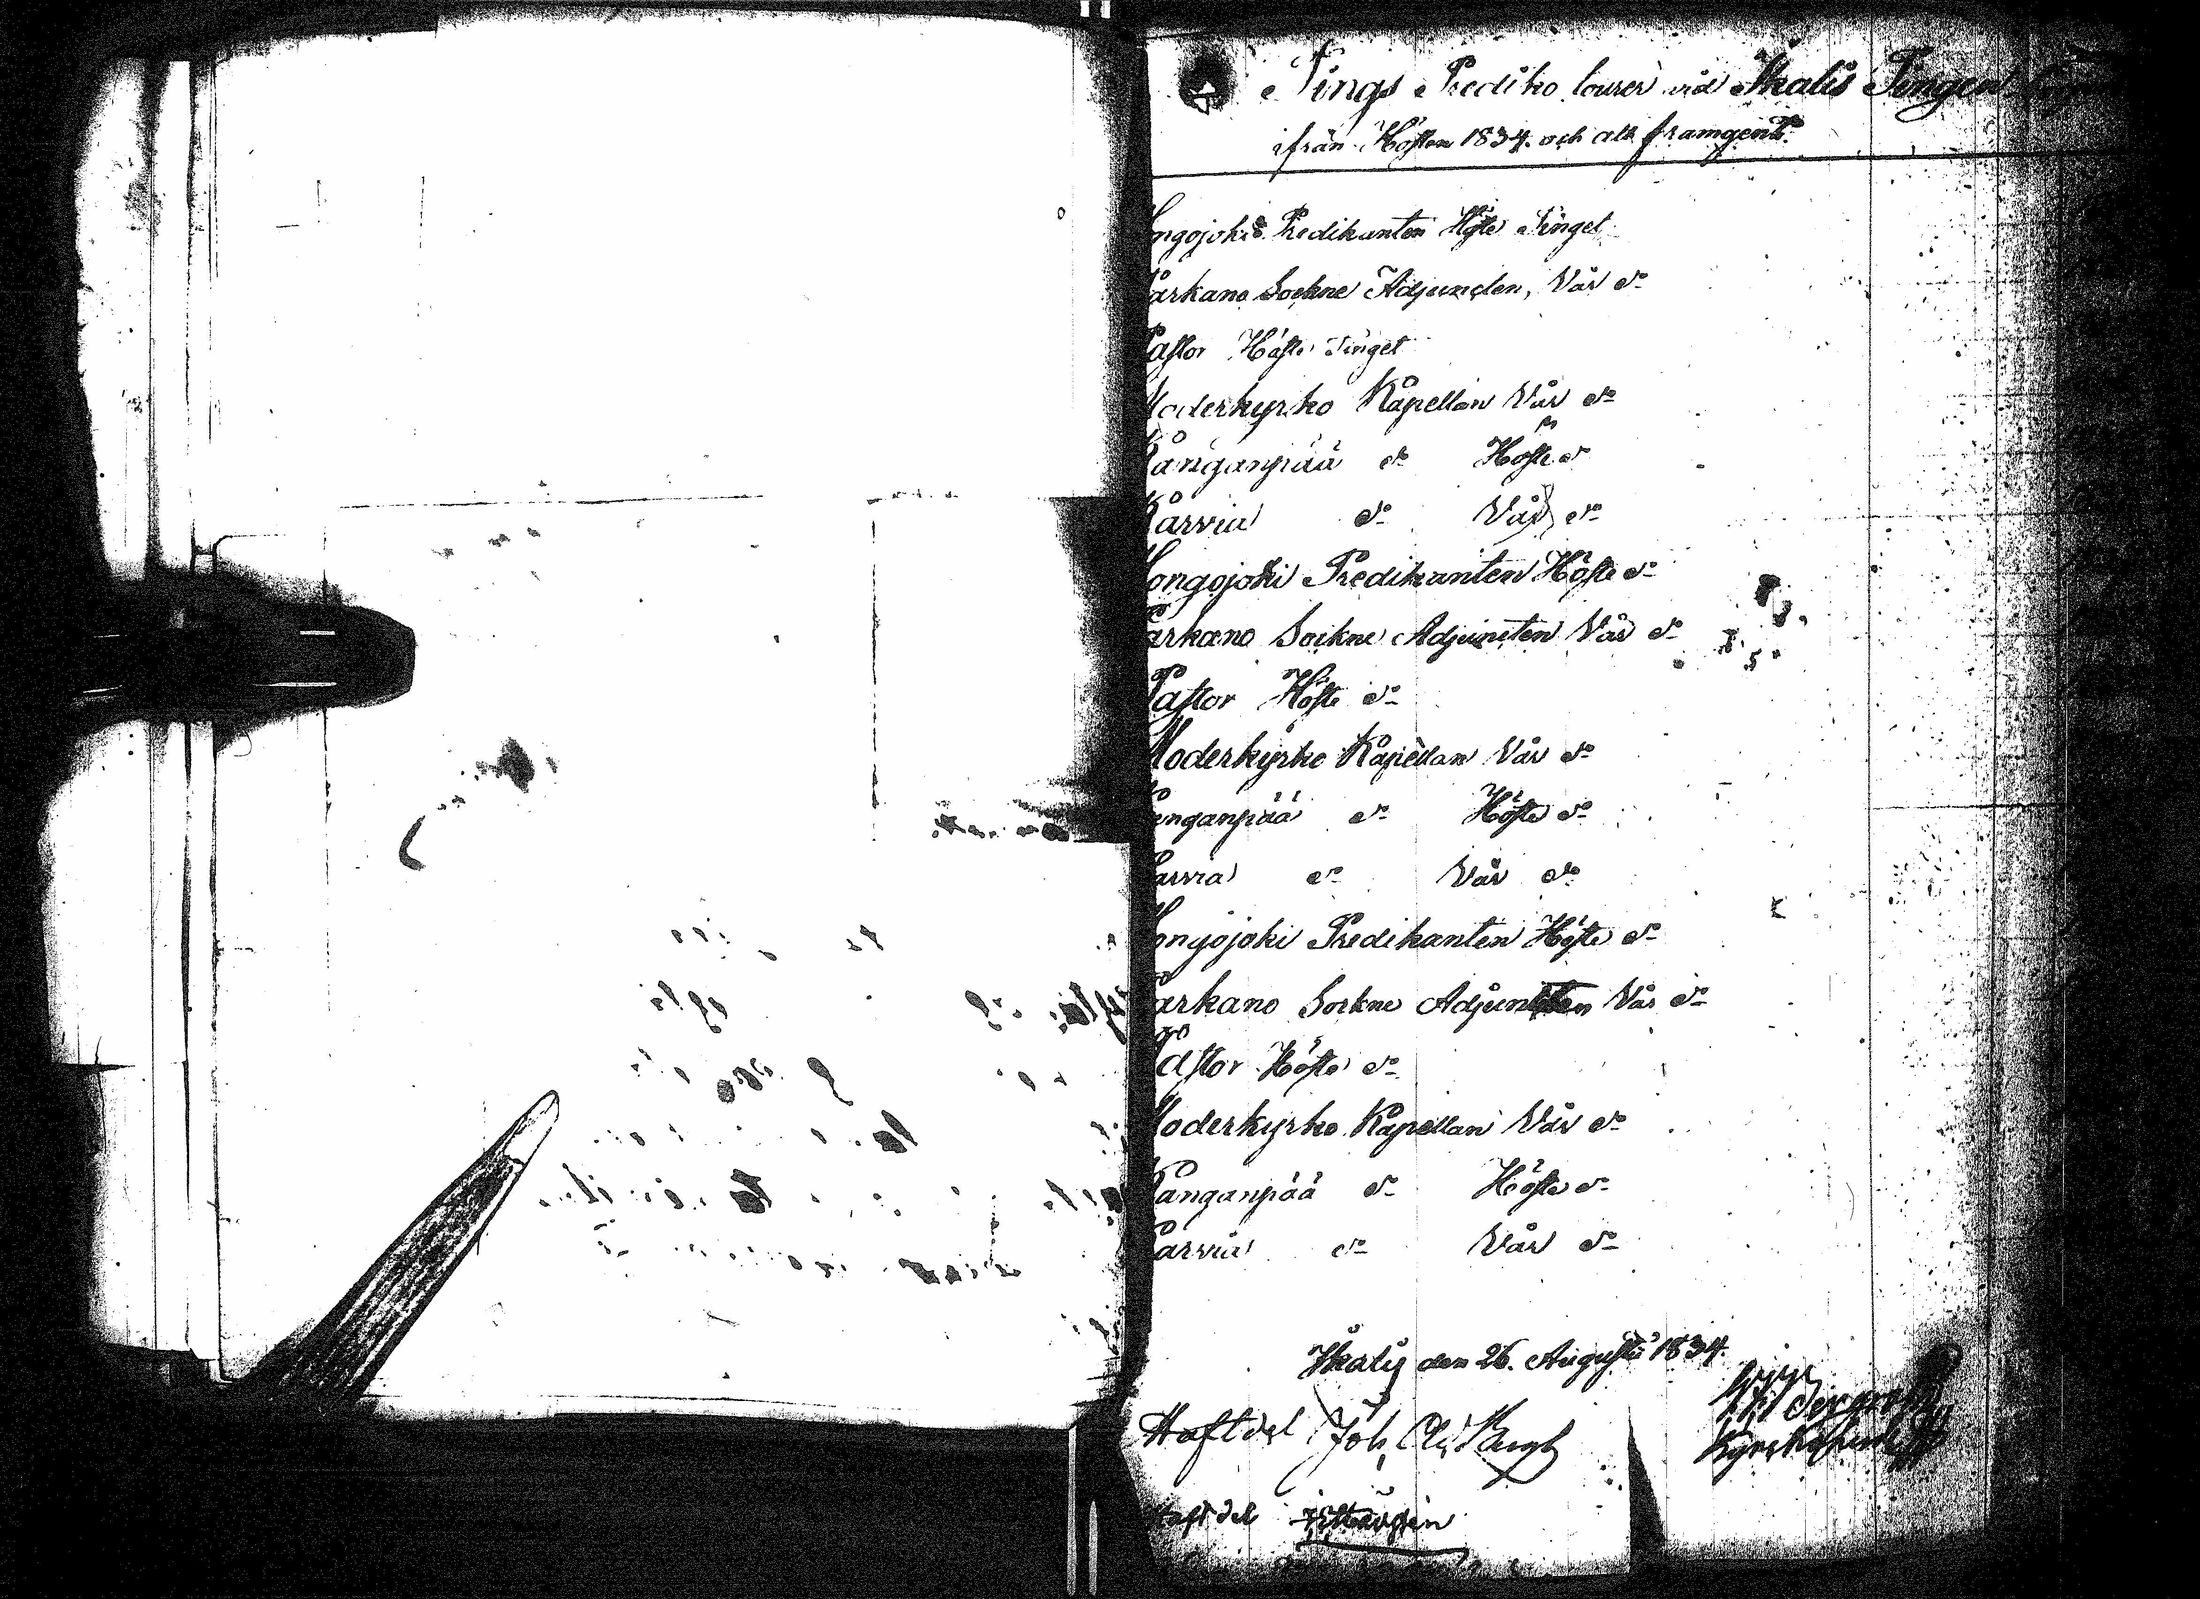 Tings Prediko tourer vid Ikalis Tingen
ifrån Hösten 1834. och allt framgent.
ongojokis Predikanten Höste Tinget
arkano Sockne Adjuncten, Vår do
Pastor Höste Tinget
Moderkyrko Kapellan Vår do
Kanganpää do Höste do
Karvia do Vår do
Hongojoki Predikanten Höste do
Parkano Sockne Adjuncten Vår do
Pastor Höste do
Moderkyrko Kapellan Vår do
Kanganpää do Höste do
Karvia do Vår do
Hongojoki Predikanten Höste do
Parkano Sockne Adjuncten Vår do
Pastor Höste do
Moderkyrko Kapellan Vår do
Kanganpää do Höste do
Karvia do Vår do
Ikalis den 26. Augusti 1834.
Haft del Joh.
Haft del